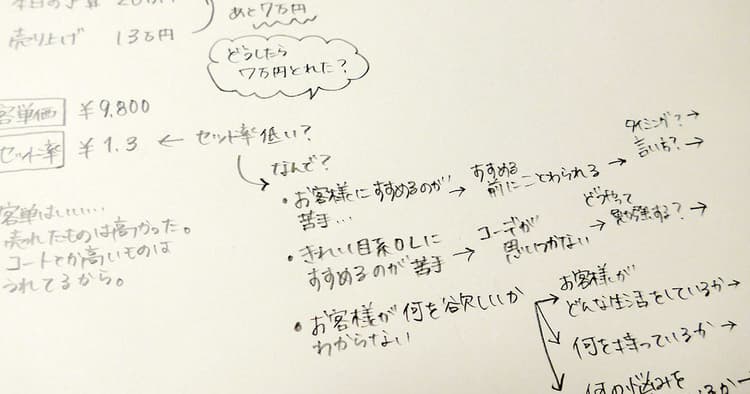 本日の予算 20万円
あと7万円
売り上げ 13万円
どうしたら
7万円とれた?
客単価 ¥9,800
セット率 ¥1.3 ← セット率低い?
なんで?
・お客様にすすめるのが
苦手…
→ すすめる
前にことわられる
→ タイミング? →
言い方? →
・きれい目系OLに
すすめるのが苦手
→ コーデが
思いつかない
→ どうやって
勉強する? →
・お客様が何を欲しいか
わからない
お客様が
どんな生活をしているか →
何を持っているか →
何の悩みを
るか
客単はいい……
売れたものは高かった。
コートとか高いものは
うれてるから。